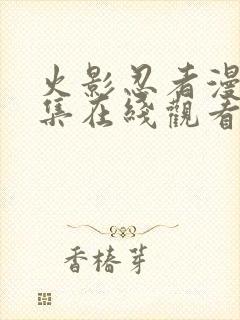 火影忍者漫
集在綫觀看
香椿芽